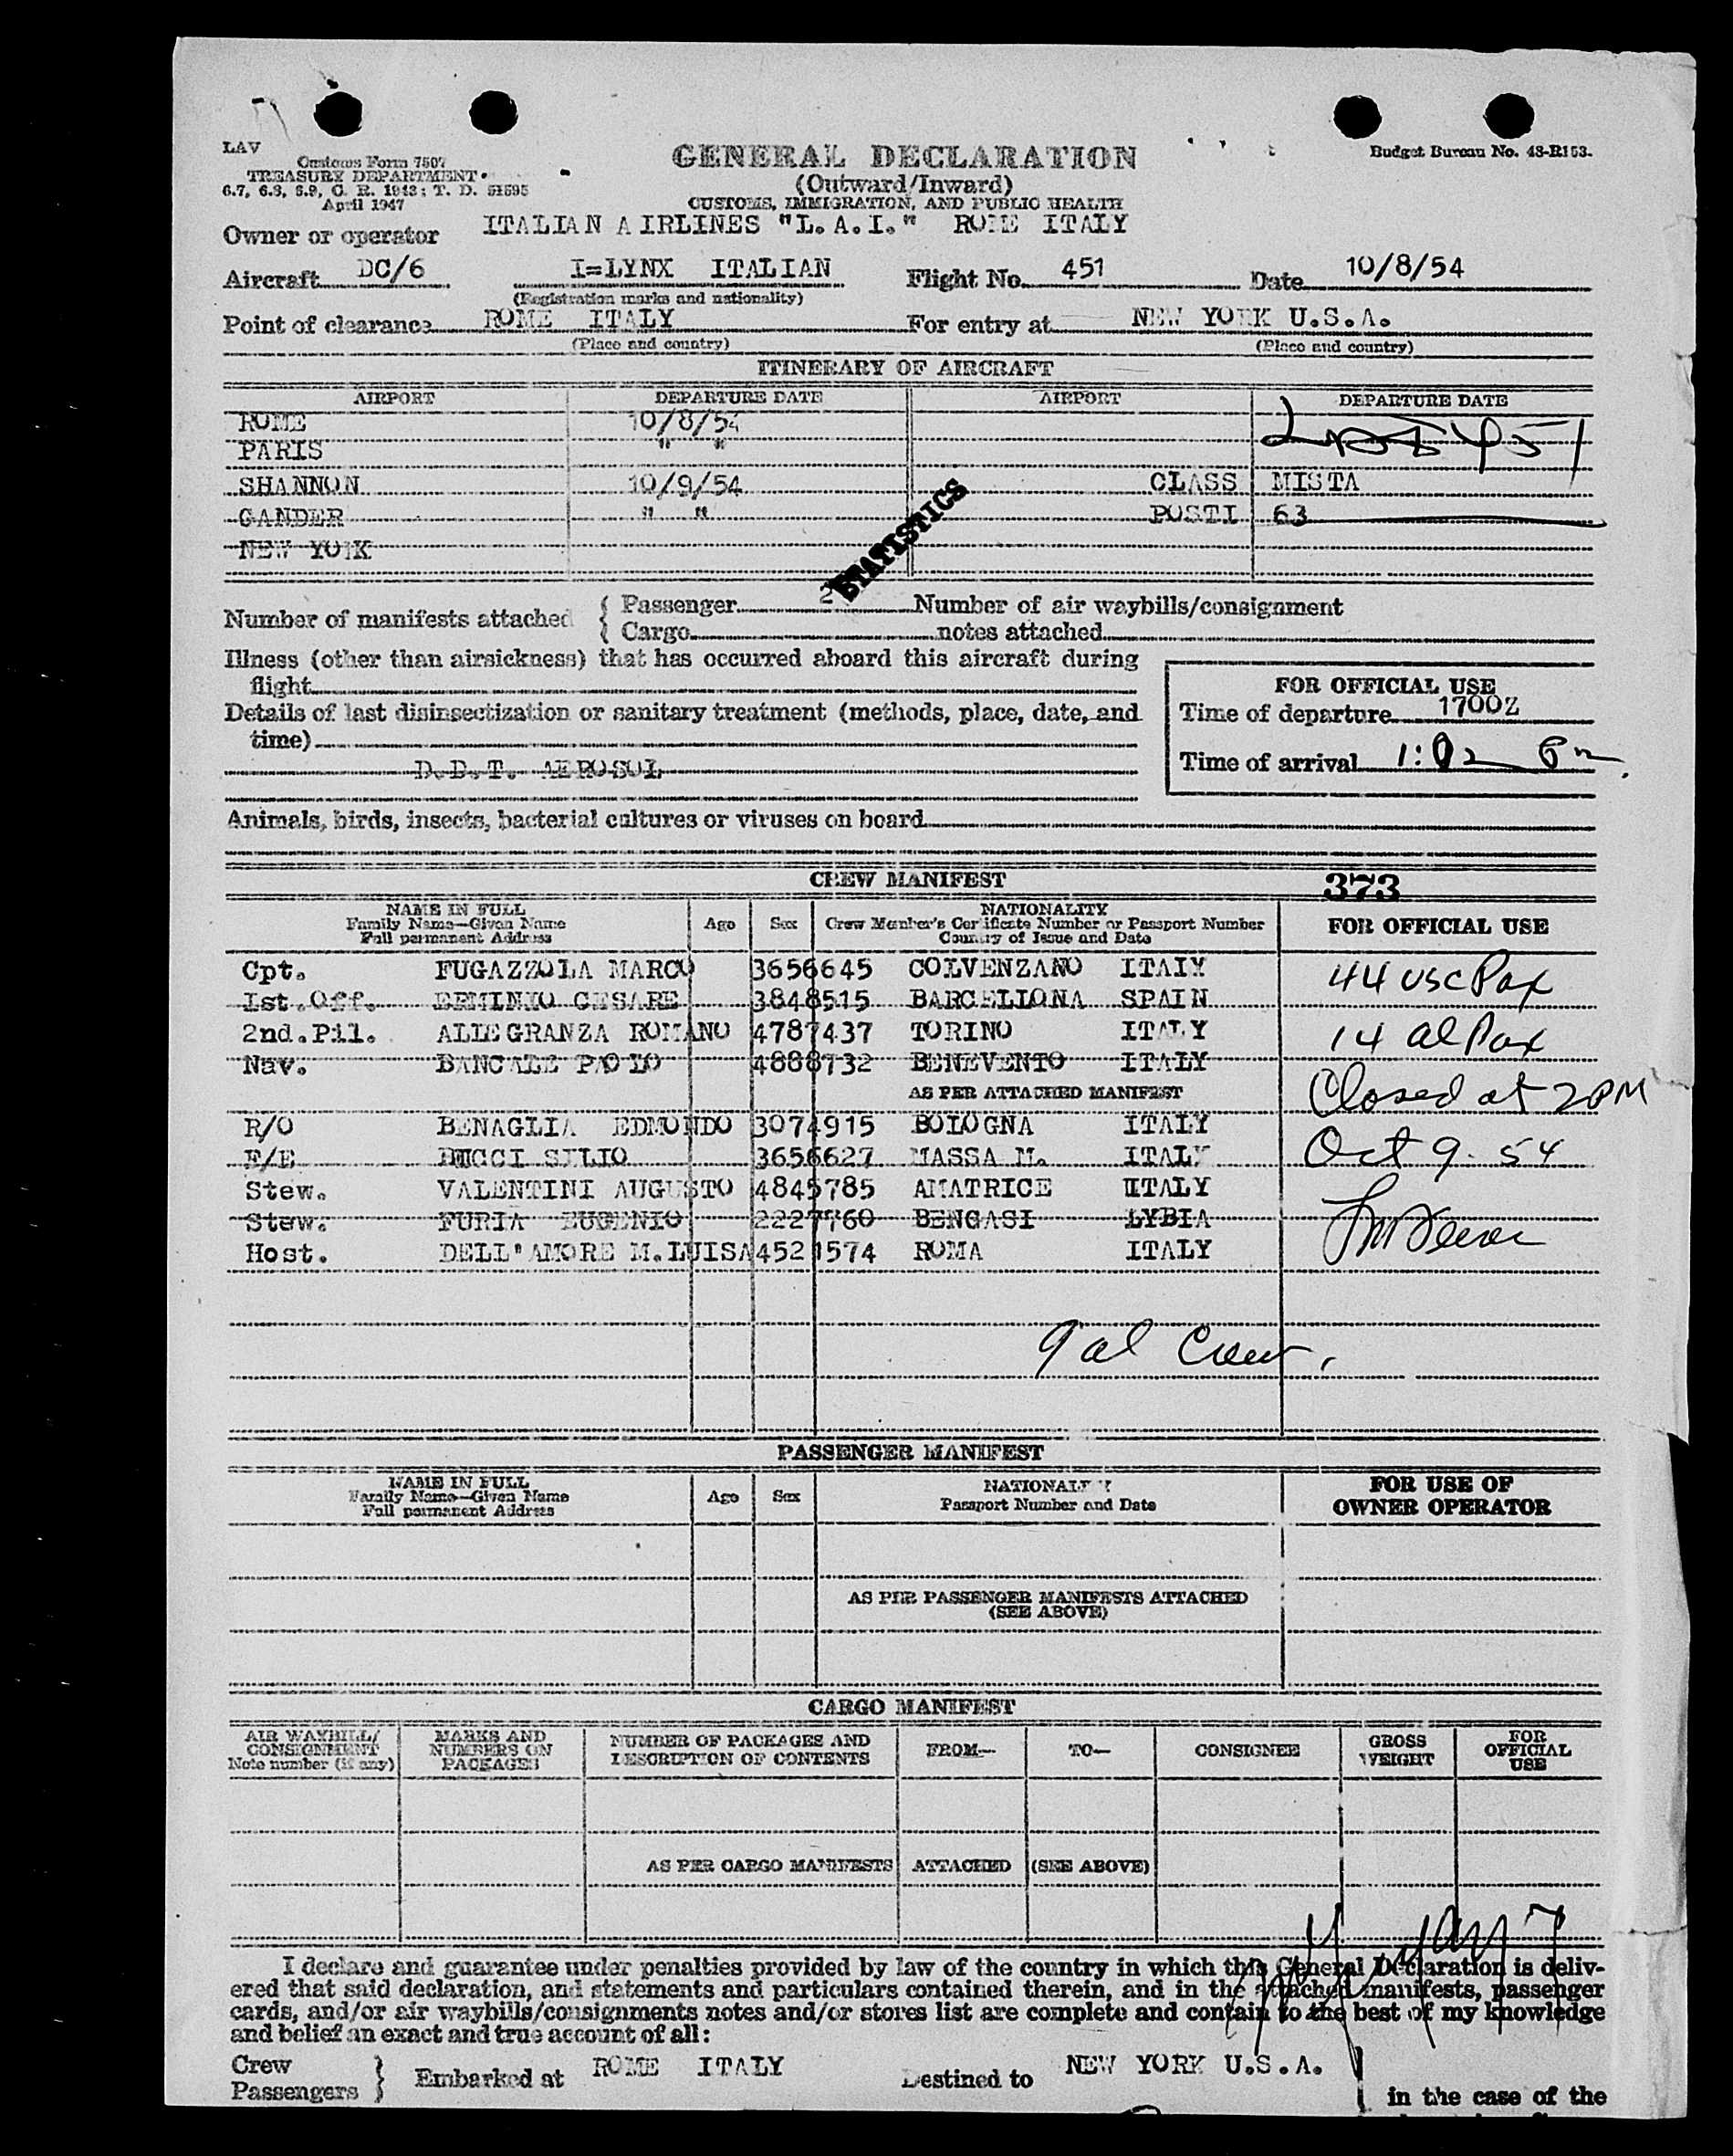 LAV
Customs Form 7507
TREASURY DEPARTMENT
6.7, 6.8, 6.9, C. R. 1943; T. D. 51595
April 1947
GENERAL DECLARATION
(Outward/Inward)
CUSTOMS, IMMIGRATION, AND PUBLIC HEALTH
Budget Bureau No. 48-R153.
Owner or operator ITALIAN AIRLINES "L.A.I." ROME ITALY
Aircraft DC/6 I=LYNX ITALIAN Flight No. 451 Date 10/8/54
(Registration marks and nationality)
Point of clearance ROME ITALY For entry at NEW YORK U.S.A.
(Place and country) (Place and country)
ITINERARY OF AIRCRAFT
AIRPORT DEPARTURE DATE AIRPORT DEPARTURE DATE
ROME 10/8/54
PARIS " " 451
SHANNON 10/9/54 CLASS MISTA
GANDER " " POSTI 63
NEW YORK
STATISTICS
Number of manifests attached { Passenger 2 Number of air waybills/consignment
Cargo notes attached
Illness (other than airsickness) that has occurred aboard this aircraft during
flight
Details of last disinsectization or sanitary treatment (methods, place, date, and
time)
D.D.T. AEROSOL
FOR OFFICIAL USE
Time of departure 1700Z
Time of arrival 1:02 Pm
Animals, birds, insects, bacterial cultures or viruses on board
CREW MANIFEST 373
NAME IN FULL
Family Name—Given Name
Full permanent Address
Age Sex
NATIONALITY
Crew Member's Certificate Number or Passport Number
Country of Issue and Date
FOR OFFICIAL USE
Cpt. FUGAZZOLA MARCO 3656645 COLVENZANO ITALY 44 USC Pax
Ist.Off. ERMINIO CESARE 3848515 BARCELLONA SPAIN
2nd.Pil. ALLEGRANZA ROMANO 4787437 TORINO ITALY 14 al Pax
Nav. BANCALE PAOLO 4888732 BENEVENTO ITALY
AS PER ATTACHED MANIFEST Closed at 2PM
R/O BENAGLIA EDMONDO 3074915 BOLOGNA ITALY
F/E DUCCI SILIO 3656627 MASSA M. ITALY Oct 9. 54
Stew. VALENTINI AUGUSTO 4845785 AMATRICE IITALY
Stew. FURIA EUGENIO 2227760 BENGASI LYBIA
Host. DELL'AMORE M.LUISA 4521574 ROMA ITALY
9 al Crew.
PASSENGER MANIFEST
NAME IN FULL
Family Name—Given Name
Full permanent Address
Age Sex
NATIONALITY
Passport Number and Date
FOR USE OF
OWNER OPERATOR
AS PER PASSENGER MANIFESTS ATTACHED
(SEE ABOVE)
CARGO MANIFEST
AIR WAYBILL/
CONSIGNMENT
Note number (if any)
MARKS AND
NUMBERS ON
PACKAGES
NUMBER OF PACKAGES AND
DESCRIPTION OF CONTENTS
FROM— TO— CONSIGNEE
GROSS
WEIGHT
FOR
OFFICIAL
USE
AS PER CARGO MANIFESTS ATTACHED (SEE ABOVE)
I declare and guarantee under penalties provided by law of the country in which this General Declaration is deliv-
ered that said declaration, and statements and particulars contained therein, and in the attached manifests, passenger
cards, and/or air waybills/consignments notes and/or stores list are complete and contain to the best of my knowledge
and belief an exact and true account of all:
Crew
Passengers } Embarked at ROME ITALY Destined to NEW YORK U.S.A.
in the case of the